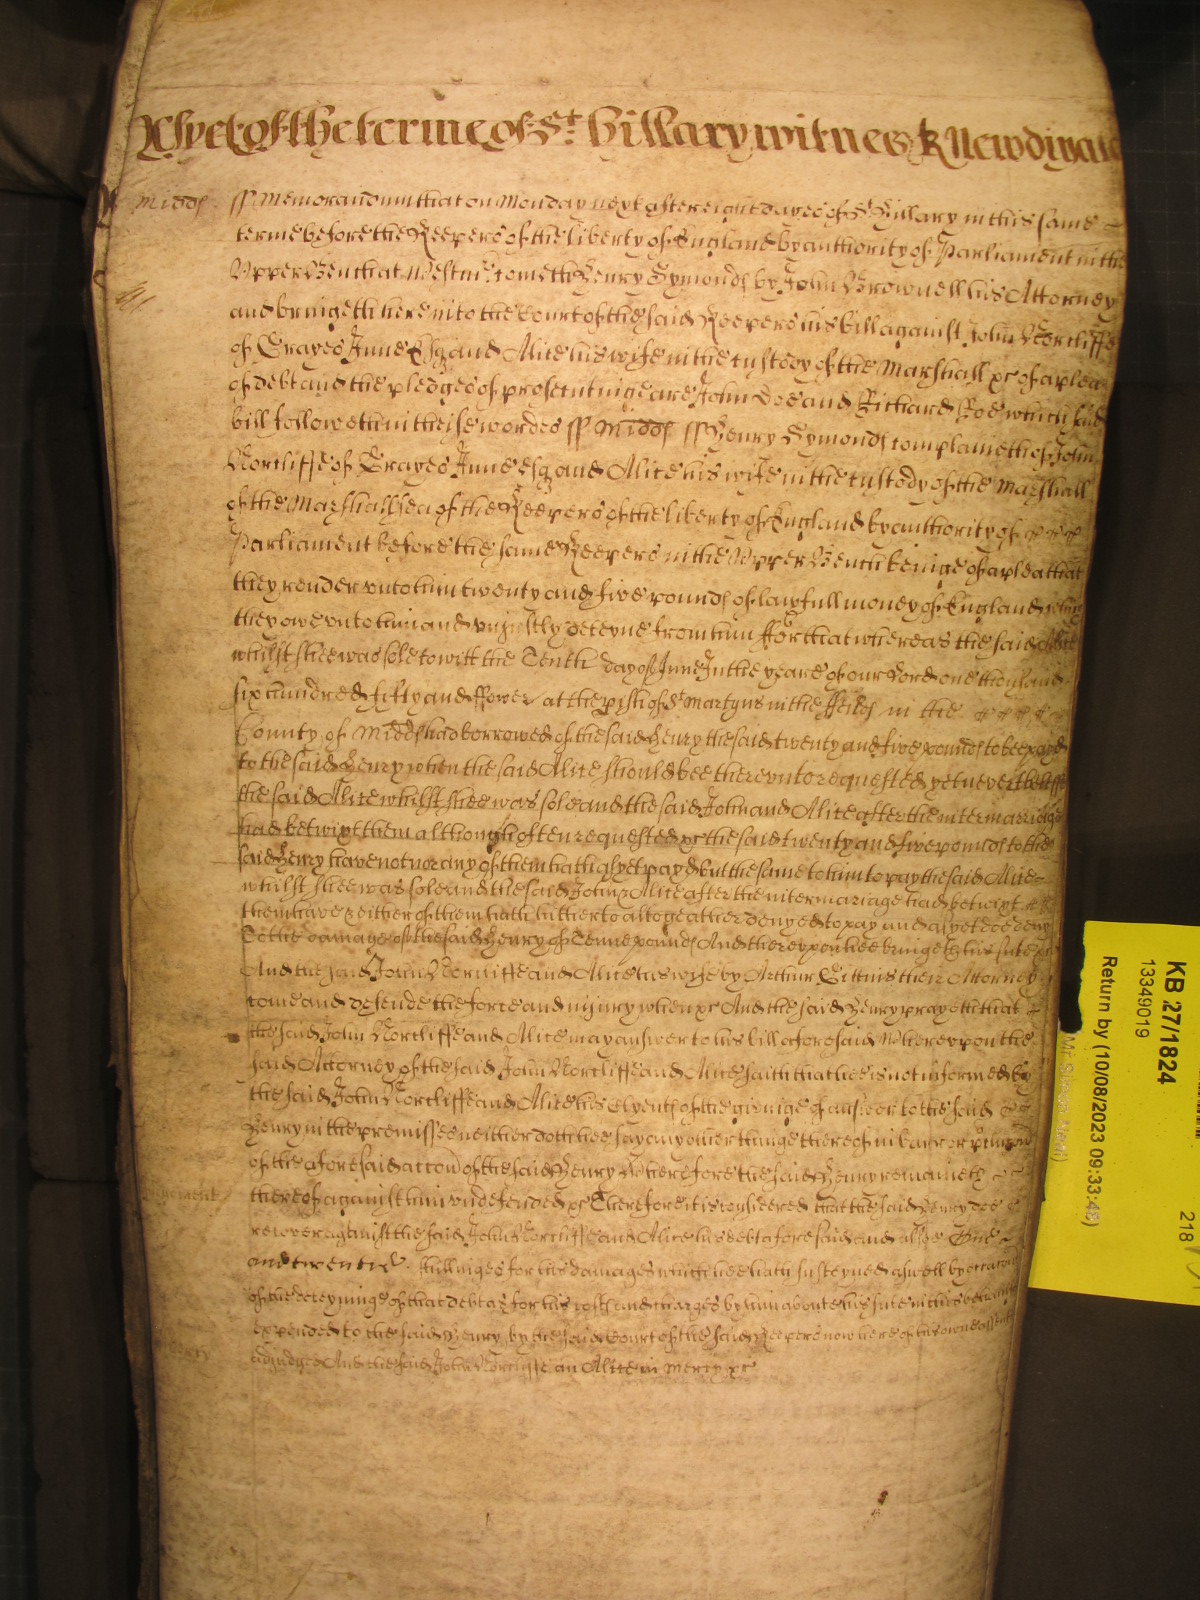 As yet of the terme of St. Hillary witnes R Newdigate
Midds ss Memorandum that on Monday next after eight dayes of St Hillary in this same
terme before the Keepers of the liberty of England by authority of Parliament in the
Upper Bench at Westmr. cometh Henry Symonds by John Brownell his Attorney
and bringeth here into the Court of the said Keepers his bill against John Nortcliffe
of Grayes Inne Esq and Alice his wife in the custody of the Marshall &c of a plea
of debt and the pledges of prosecuting are John Doe and Richard Roe which said
bill followeth in theise wordes ss Midds ss Henry Symonds complaineth of John
Nortcliffe of Grayes Inne Esq and Alice his wife in the custody of the Marshall
of the Marshallsea of the Keepers of the liberty of England by authority of
Parliament before the same Keepers in the Upper Bench beinge of a plea that
they render unto him twenty and five pounds of lawfull money of England which
they owe unto him and uniustly deteyne from him ffor that whereas the said Alice
whilst shee was sole to witt the Tenth day of June In the yeare of our Lord one thousand
six hundred fifty and ffower at the pish of St Martyns in the ffeilds in the
County of Midds had borrowed of the said Henry the said twenty and five pounds to bee payd
to the said Henry when the said Alice should bee thereunto requested yet neverthelesse
the said Alice whilst shee was sole and the said John and Alice after the intermarriage
had betwixt them although often requested &c the said twenty and five pounds to the
said Henry have not nor any of them hath as yet payd but the same to him to pay the said Alice
whilst shee was sole and the said John & Alice after the intermariage had betwixt
them have & either of them hath hitherto altogeather denyed to pay and as yet doe deny
To the damage of the said Henry of Tenne pounds And thereupon hee bringeth his sute &c
And the said John Nortcliffe and Alice his wife by Arthur Gittins their Attorney
come and defende the force and iniury when &c And the said Henry prayeth that
the said John Nortcliffe and Alice may answer to his bill aforesaid Whereupon the
said Attorney of the said John Nortcliffe and Alice saith that hee is not informed by
the said John Nortcliffe and Alice his Clyents of the givinge of answer to the said
Henry in the premisses neither doth hee say any other thinge thereof in barr or
of the aforesaid accon of the said Henry Wherefore the said Henry remaineth
thereof against him undefended &c Therefore it is considered that the said Henry doe
recover against the said John Nortcliffe and Alice his debt aforesaid and alsoe One
and twentie shillinges for his damages which hee hath susteyned aswell by occasion
of the deteyninge of that debt as for his costs and charges by him about his sute in this behalfe
expended to the said Henry by the said Court of the said Keepers now here of his owne assent
adiudged And the said John Nortcliffe an Alice in mercy &c
Judgment
KB 27/1824
13349019
Return by (10/08/2023 09:33:48)
218